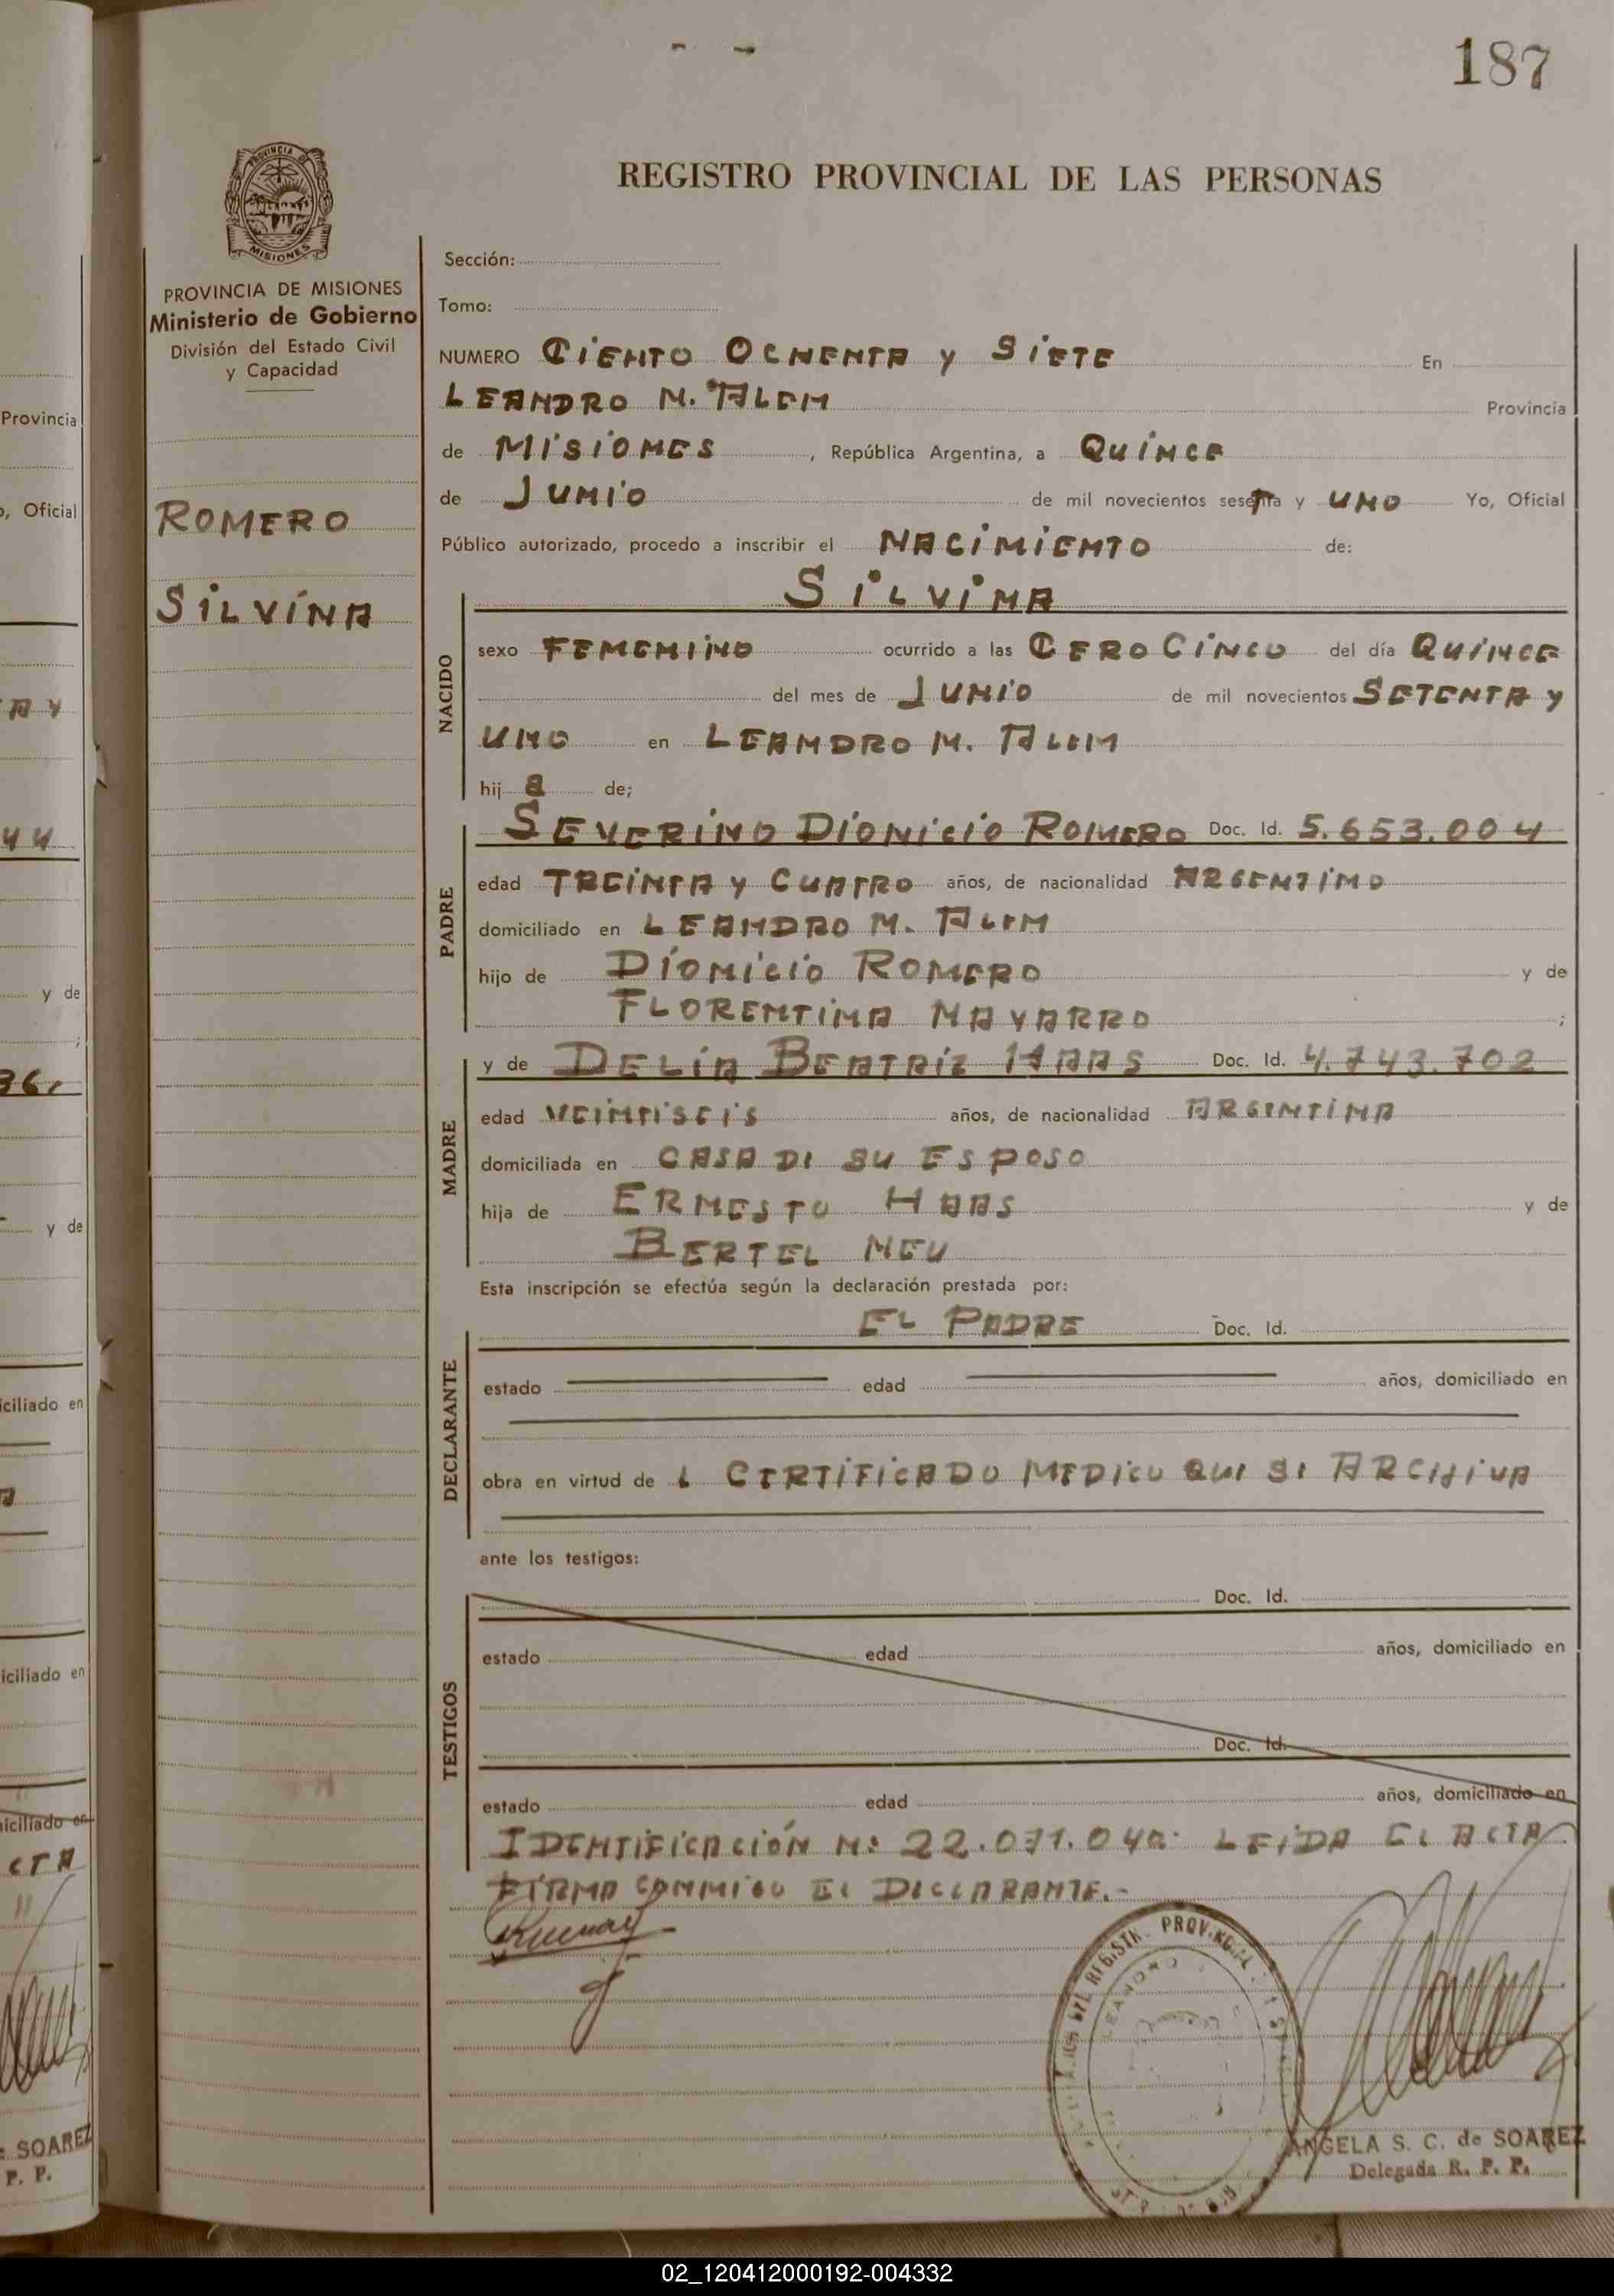 187
REGISTRO PROVINCIAL DE LAS PERSONAS
PROVINCIA DE MISIONES
PROVINCIA DE MISIONES
Ministerio de Gobierno
División del Estado Civil
y Capacidad
ROMERO
SILVINA
Sección:
Tomo:
NUMERO CIENTO OCHENTA y SIETE En
LEANDRO N. ALEM Provincia
de MISIONES , República Argentina, a QUINCE
de JUNIO de mil novecientos setenta y UNO Yo, Oficial
Público autorizado, procedo a inscribir el NACIMIENTO de:
SILVINA
NACIDO
sexo FEMENINO ocurrido a las CERO CINCO del día QUINCE
del mes de JUNIO de mil novecientos SETENTA y
UNO en LEANDRO N. ALEM
hij a de;
SEVERINO DIONICIO ROMERO Doc. Id. 5.653.004
PADRE
edad TREINTA y CUATRO años, de nacionalidad ARGENTINO
domiciliado en LEANDRO N. ALEM
hijo de DIONICIO ROMERO y de
FLORENTINA NAVARRO ;
y de DELIA BEATRIZ HAAS Doc. Id. 4.743.702
MADRE
edad VEINTISEIS años, de nacionalidad ARGENTINA
domiciliada en CASA DE SU ESPOSO
hija de ERNESTO HAAS y de
BERTEL NEU
Esta inscripción se efectúa según la declaración prestada por:
EL PADRE Doc. Id.
DECLARANTE
estado edad años, domiciliado en
obra en virtud de L CERTIFICADO MEDICO QUE SE ARCHIVA
ante los testigos:
Doc. Id.
TESTIGOS
estado edad años, domiciliado en
Doc. Id.
estado edad años, domiciliado en
IDENTIFICACIÓN N: 22.071.040 LEIDA EL ACTA
FIRMA CONMIGO EL DECLARANTE.-
LEANDRO
ANGELA S. C. de SOAREZ
Delegada R. P. P.
Provincia
o, Oficial
A y
44
y de
;
36,
y de
iciliado en
iciliado en
iciliado en
CTA
SOAREZ
P. P.
02_120412000192-004332